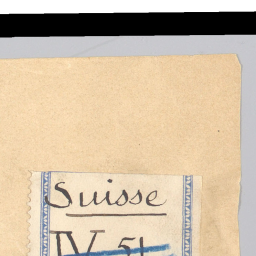 Suisse
IV 51